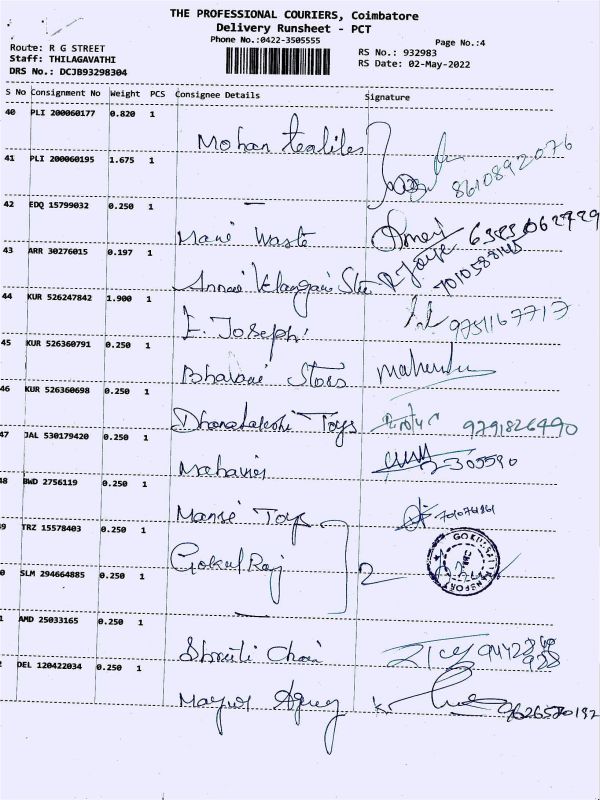 THE PROFESSIONAL COURIERS, Coimbatore
Delivery Runsheet - PCT
Phone No.:0422-3505555
Page No.:4
Route: R G STREET
RS No.: 932983
Staff: THILAGAVATHI
RS Date: 02-May-2022
DRS No.: DCJB93298304
S No Consignment No Weight PCS Consignee Details Signature
40 PLI 200060177 0.820 1
Mohan textiles
41 PLI 200060195 1.675 1
8610892076
42 EDQ 15799032 0.250 1
Mani Waste
43 ARR 30276015 0.197 1
7010588145
44 KUR 526247842 1.900 1
E. Joseph
9751167717
45 KUR 526360791 0.250 1
Bhavani Stores mahendra
46 KUR 526360698 0.250 1
Dhanalakshmi Toys 9791826490
47 JAL 530179420 0.250 1
Mahavir
48 BWD 2756119 0.250 1
Mansi Toys
49 TRZ 15578403 0.250 1
Gokul Raj 2
50 SLM 294664885 0.250 1
51 AMD 25033165 0.250 1
Shruti Chain
52 DEL 120422034 0.250 1
Mayur Agency
9626580192